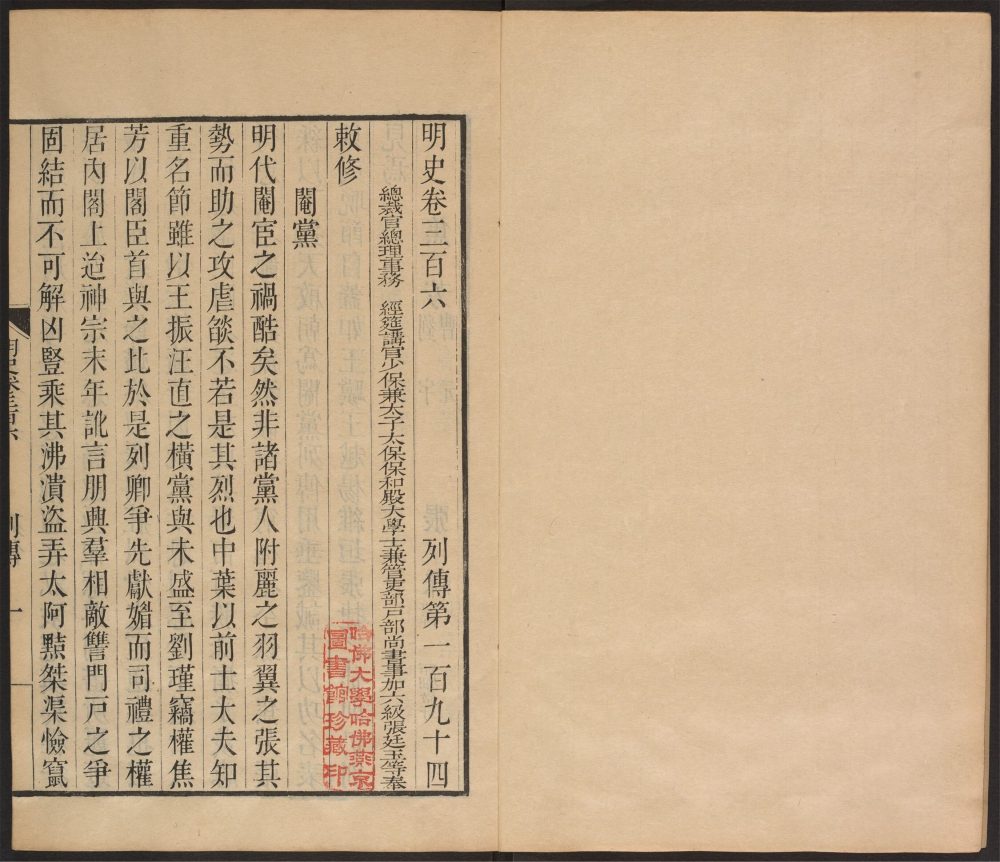 明史卷三百六 列傳第一百九十四
總裁官總理事務 經筵講官少保兼太子太保保和殿大學士兼管吏部戶部尚書事加六級張廷玉等奉
敕修
閹黨
明代閹宦之禍酷矣然非諸黨人附麗之羽翼之張其
勢而助之攻虐燄不若是其烈也中葉以前士大夫知
重名節雖以王振汪直之橫黨與未盛至劉瑾竊權焦
芳以閣臣首與之比於是列卿爭先獻媚而司禮之權
居內閣上迨神宗末年訛言朋興羣相敵讐門戶之爭
固結而不可解凶豎乘其沸潰盜弄太阿黠桀渠憸竄
列傳 一
哈佛大學哈佛燕京
圖書館珍藏印